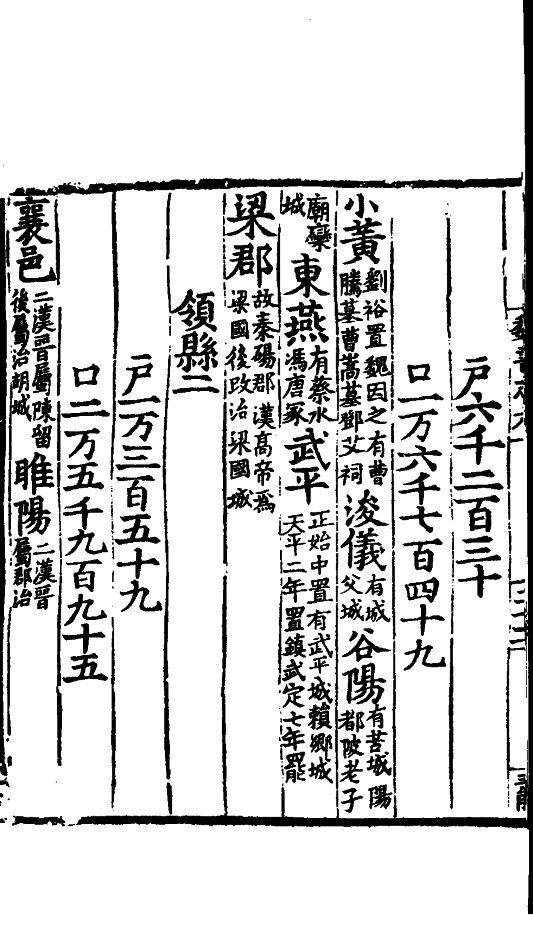 戶六千二百三十
口一万六千七百四十九
小黄劉裕置魏因之有曹騰墓曹嵩墓鄧艾祠浚儀有城父城谷陽有苦城陽都陂老子
廟欒城東燕有蔡水馮唐冢武平正始中置有武平城賴鄉城天平二年置鎮武定七年罷
梁郡故秦碭郡漢高帝爲梁國後改治梁國城
領縣二
戶一万三百五十九
口二万五千九百九十五
襄邑二漢晉屬陳留後屬治胡城睢陽二漢晉屬郡治